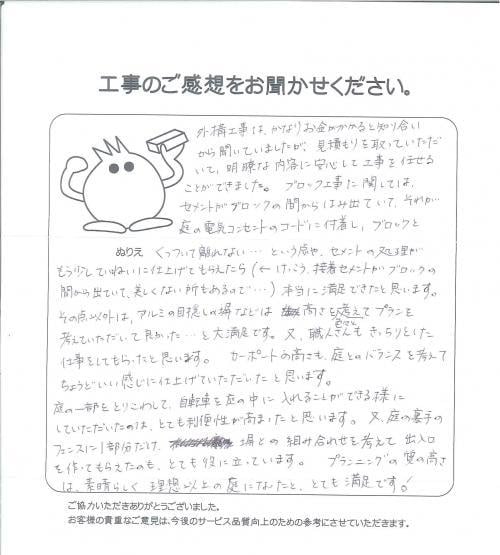 工事のご感想をお聞かせください。
外構工事は、かなりお金がかかると知り合い
から聞いていましたが、見積もりを取っていただ
いて、明瞭な内容に安心して工事を任せる
ことができました。 ブロック工事に関しては、
セメントがブロックの間からはみ出ていて、それが
庭の電気コンセントのコードに付着し、ブロックと
ぬりえ くっついて離れない… という感や、セメントの処理が
もう少していねいに仕上げてもらえたら (← けっこう、接着セメントがブロックの
間から出ていて、美しくない所もあるので…) 本当に満足できたと思います。
その点以外は、アルミの目隠しの塀などは 高さを考えてプランを
考えていただいて良かった…と大満足です。又、職人さんもきっちりとした
仕事をしてもらったと思います。 カーポートの高さも、庭とのバランスを考えて
ちょうどいい感じに仕上げていただいたと思います。
庭の一部をとりこわして、自転車を庭の中に入れることができる様に
していただいたのは、とても利便性が高まったと思います。又、庭の裏手の
フェンスに1部分だけ、 場との組み合わせを考えて 出入口
を作ってもらえたのも、とても役に立っています。 プランニングの質の高さ
は、素晴らしく 理想以上の庭になったと、とても満足です!
ご協力いただきありがとうございました。
お客様の貴重なご意見は、今後のサービス品質向上のための参考にさせていただきます。